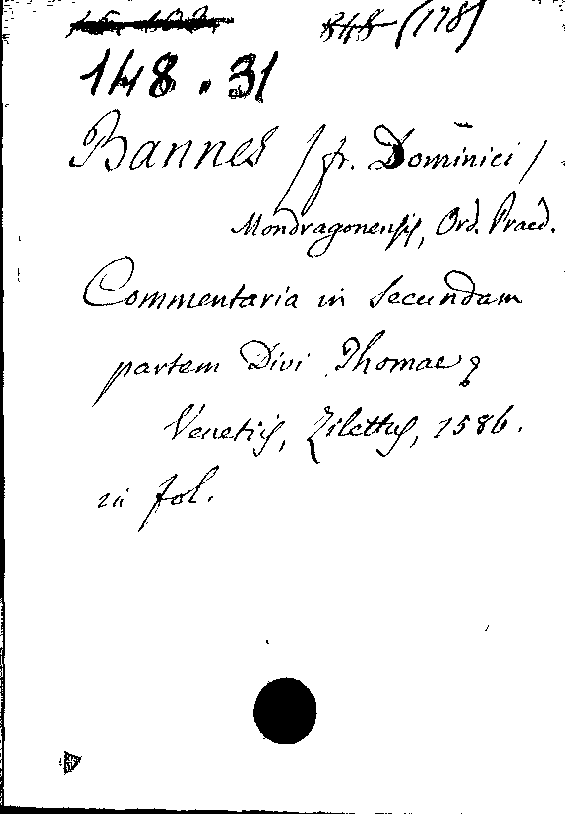 848 (178)
148.31
Bannes /fr. Dominici/
Mondragonensis, Ord. Praed.
Commentaria in secundam
partem Divi Thomae;
Venetiis, Zilettus, 1586.
in fol.